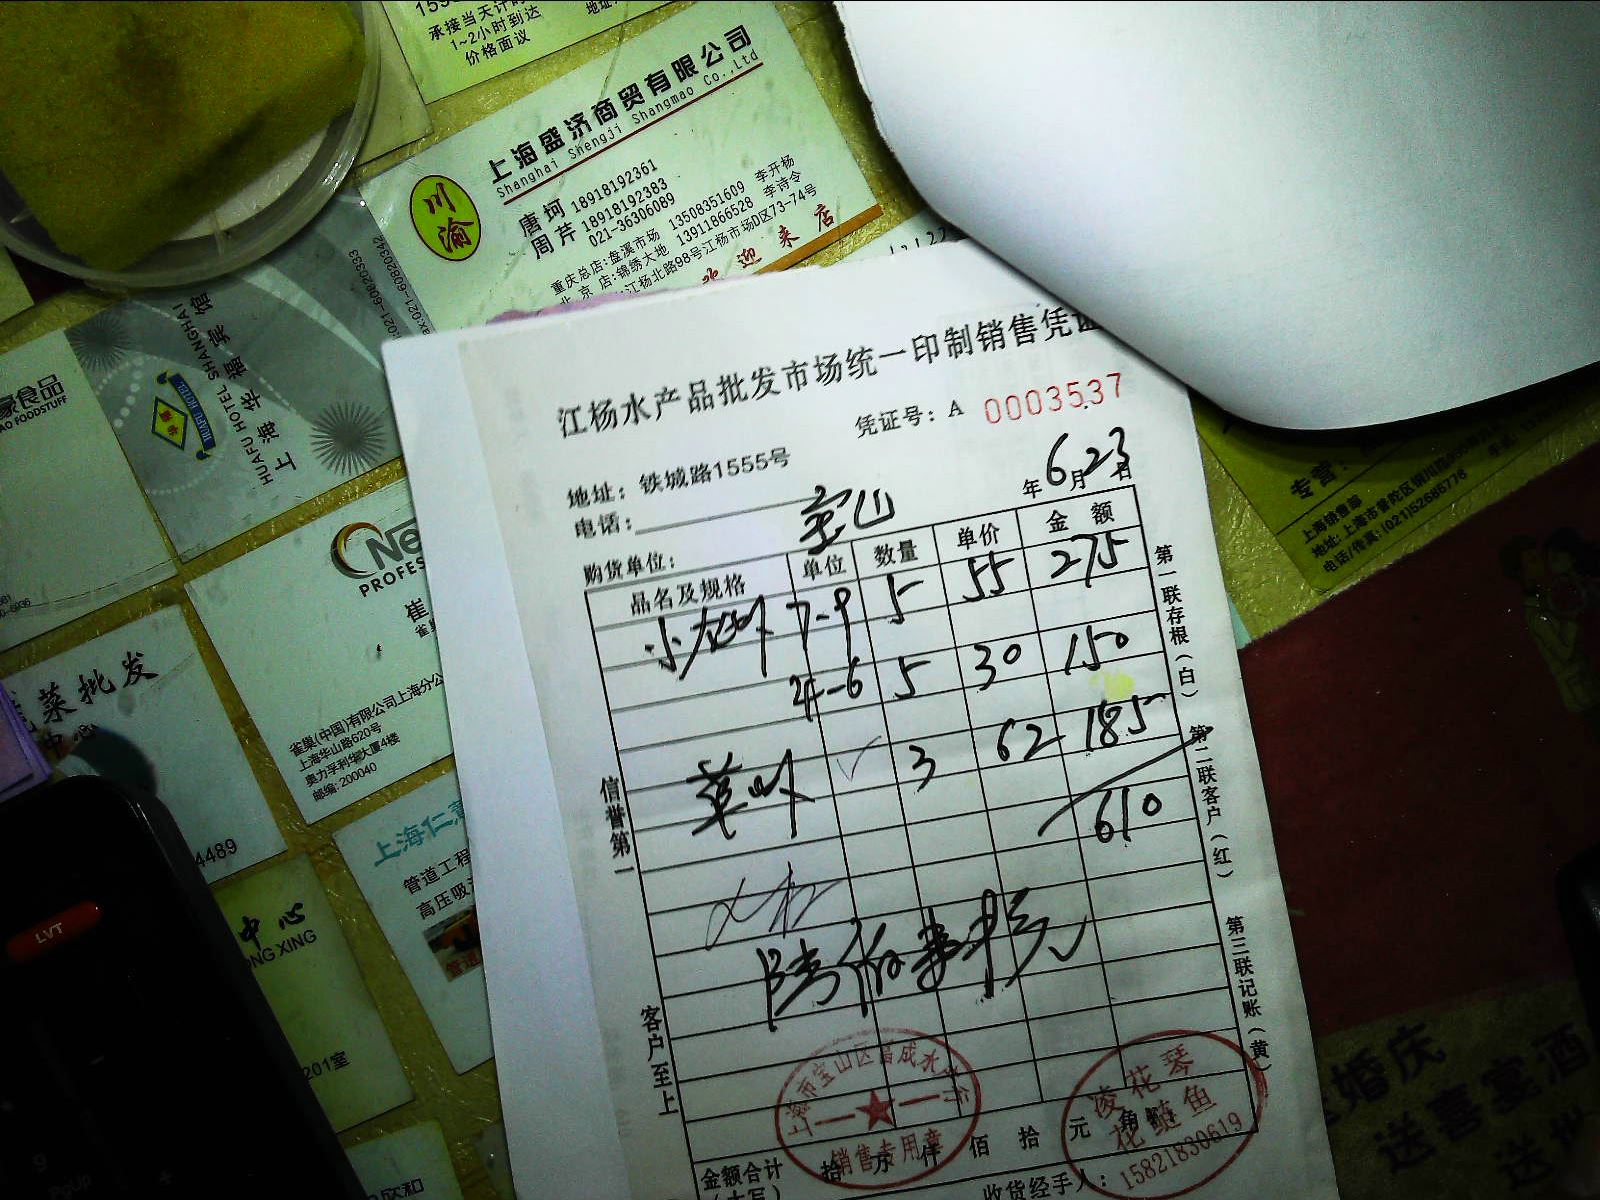 承接当天计时
1~2小时到达
价格面议
上海盛济商贸有限公司
Shanghai Shengji Shangmao Co.,Ltd
川渝
唐 珂 18918192361
周 芹 18918192383
021-36306089
重庆总店:盘溪市场 13508351609 李开杨
北 京 店:锦绣大地 13911866528 李诗令
江杨北路98号江杨市场D区73-74号
迎 来 店
上海华福宾馆
HUAFU HOTEL SHANGHAI
HUAFU HOTEL
021-60820333
021-60820342
食品
FOODSTUFF
PROFES
崔
雀巢(中国)有限公司上海分公
上海华山路620号
奥力孚利华大厦4楼
邮编:200040
菜批发
中心
4489
上海仁
管道工程
高压吸
中心
ONG XING
201室
欣和
LVT
9
PgUp
江杨水产品批发市场统一印制销售凭证
凭证号: A 0003537
地址: 铁城路1555号
电话:
年 6 月 23 日
购货单位: 宝山
品名及规格 单位 数量 单价 金 额
小龙虾 7-9 5 55 275
4-6 5 30 150
草虾 3 62 185
610
陆佰壹拾元
信誉第一
客户至上
第一联存根(白)
第二联客户(红)
第三联记账(黄)
上海市宝山区昌成水产行
销售专用章
凌花琴
花鲢鱼
15821830619
金额合计
(大写)
拾 万 仟 佰 拾 元 角
收货经手人:
专营:
上海销售部
地址:上海市普陀区铜川路
电话/传真:(021)52686776
婚庆
送喜宴酒
送